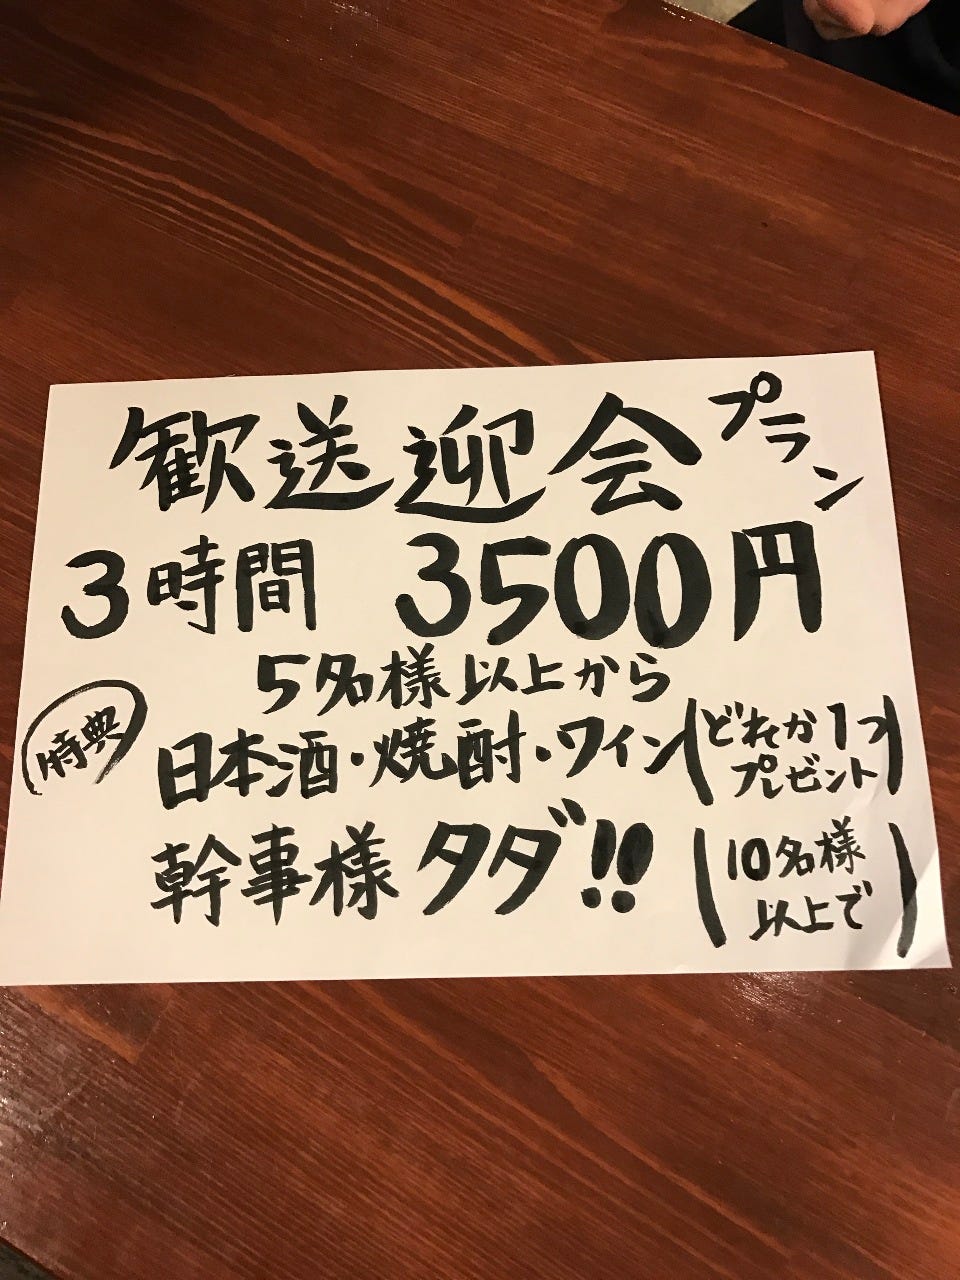 歓送迎会プラン
3時間 3500円
5名様以上から
特典
日本酒・焼酎・ワイン(どれか1つ
プレゼント)
幹事様タダ!!(10名様
以上で)